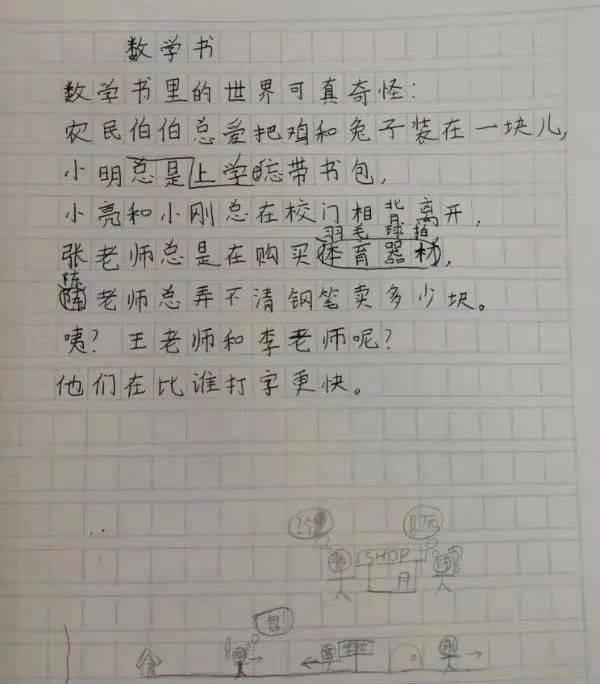 数学书
数学书里的世界可真奇怪：
农民伯伯总爱把鸡和兔子装在一块儿，
小明总是上学忘带书包，
小亮和小刚总在校门相背离开，
羽毛球拍
张老师总是在购买体育器材，
陈
老师总弄不清钢笔卖多少块。
咦？王老师和李老师呢？
他们在比谁打字更快。
SHOP
包！